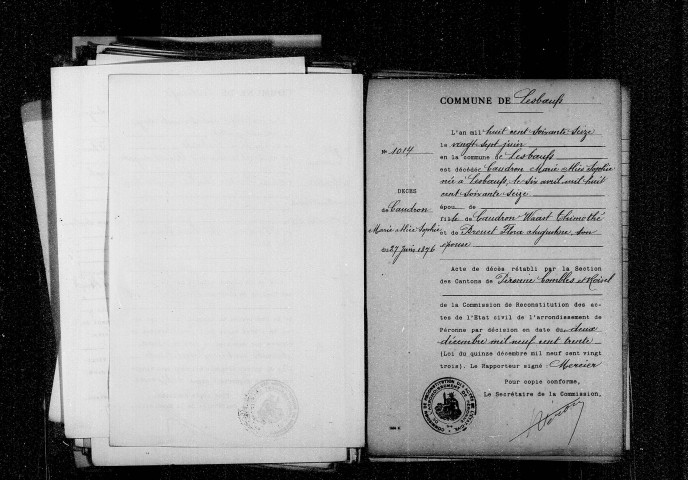 COMMUNE DE Lesbœufs
L'an mil huit cent soixante seize
le vingt sept juin
en la commune de Lesbœufs
est décédée Caudron Marie Alice Sophie
née à Lesbœufs, le six avril mil huit
cent soixante seize
épou de
fille de Caudron Waast Thimothé
et de Drouet Flora son
épouse
N° 1014
DECES
de Caudron
Marie Alice Sophie
du 27 Juin 1876
Acte de décès rétabli par la Section
des Cantons de Péronne Combles et Roisel
de la Commission de Reconstitution des ac-
tes de l'État civil de l'arrondissement de
Péronne par décision en date du deux
décembre mil neuf cent trente
(Loi du quinze décembre mil neuf cent vingt
trois). Le Rapporteur signé Mercier
Pour copie conforme,
Le Secrétaire de la Commission,